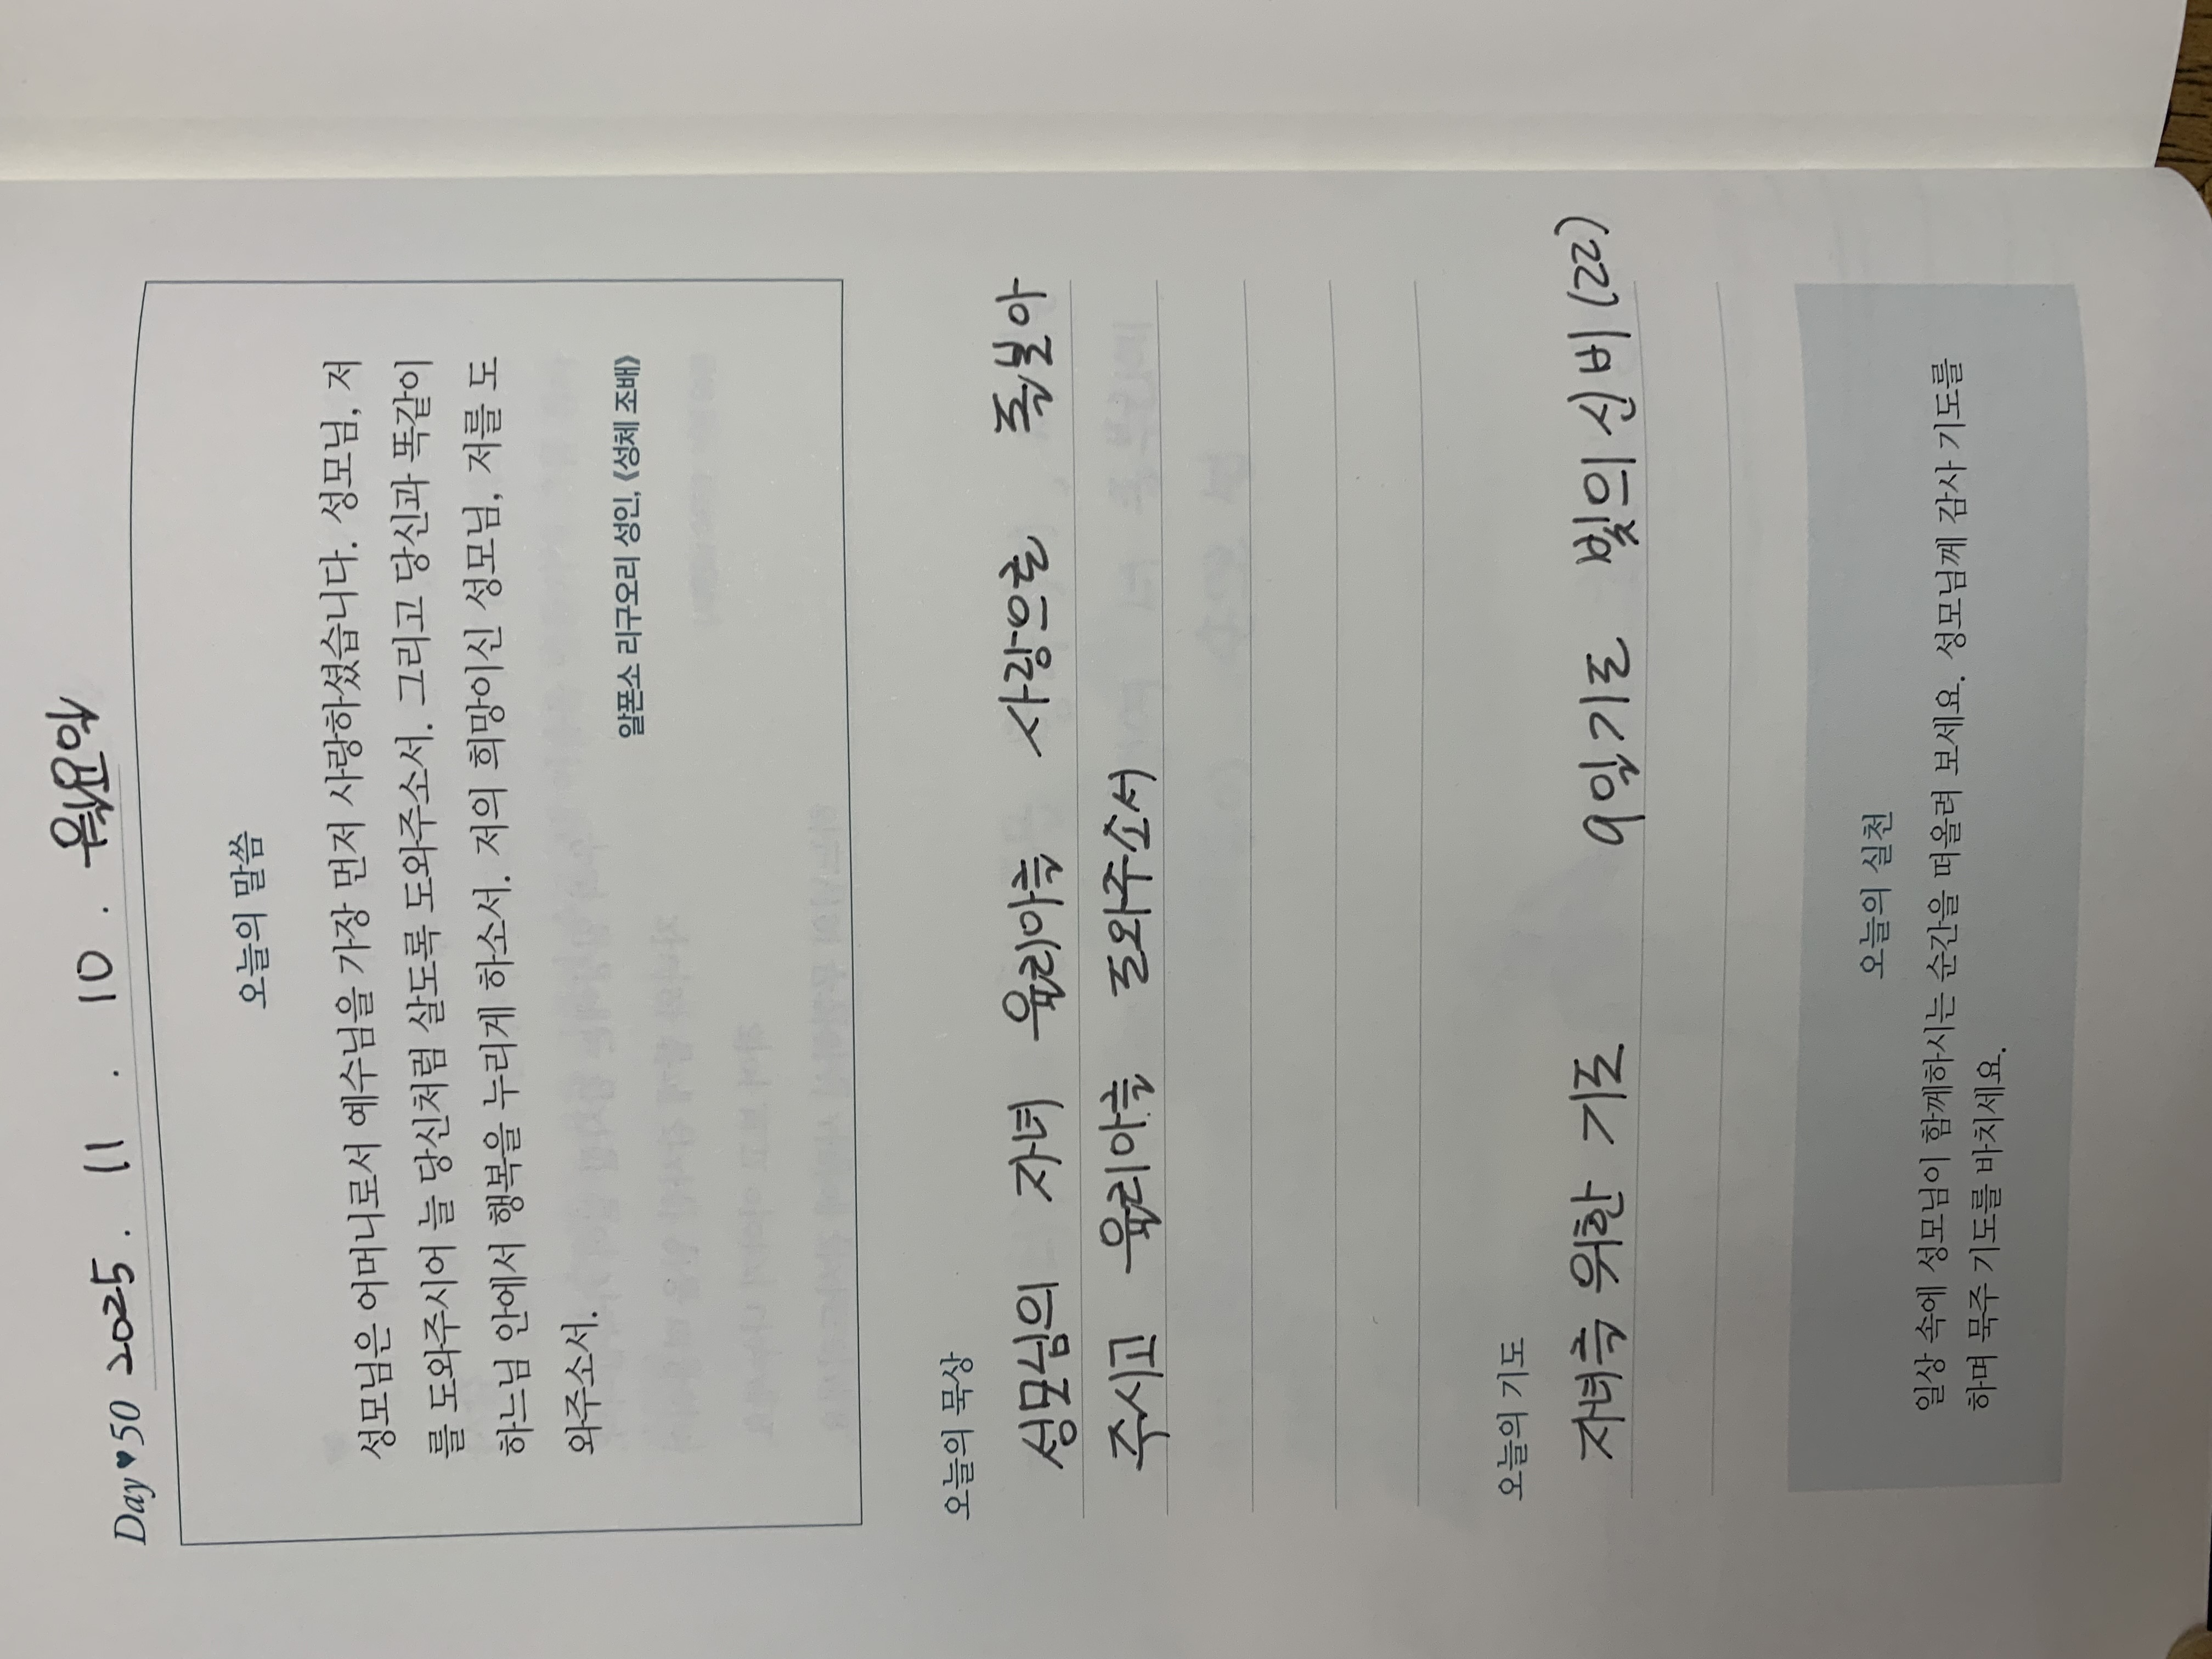 Day♥50 2025. 11. 10. 월요일
오늘의 말씀
성모님은 어머니로서 예수님을 가장 먼저 사랑하셨습니다. 성모님, 저
를 도와주시어 늘 당신처럼 살도록 도와주소서. 그리고 당신과 똑같이
하느님 안에서 행복을 누리게 하소서. 저의 희망이신 성모님, 저를 도
와주소서.
알폰소 리구오리 성인, 《성체 조배》
오늘의 묵상
성모님의 자녀 율리아를 사랑으로 돌보아
주시고 율리아를 도와주소서
오늘의 기도
자녀를 위한 기도 9일기도 빛의신비(22)
오늘의 실천
일상 속에 성모님이 함께하시는 순간을 떠올려 보세요. 성모님께 감사 기도를
하며 묵주 기도를 바치세요.